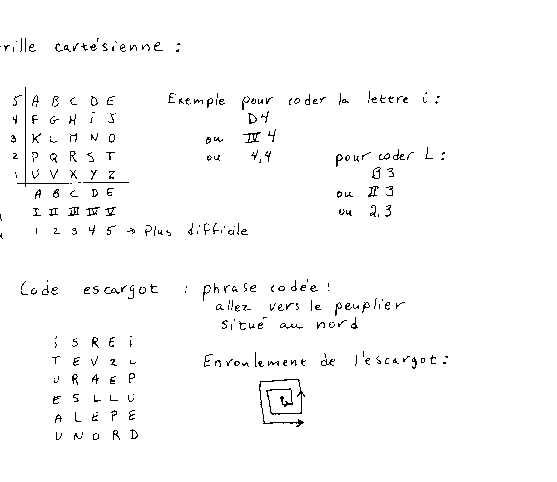 rille cartésienne :
5 A B C D E
4 F G H i J
3 K L M N O
2 P Q R S T
1 U V X Y Z
A B C D E
I II III IV V
1 2 3 4 5 → Plus difficile
Exemple pour coder la lettre i :
D4
ou IV 4
ou 4,4
pour coder L :
B 3
ou II 3
ou 2,3
Code escargot : phrase codée !
allez vers le peuplier
situé au nord
i S R E i
T E V Z L
U R A E P
E S L L U
A L E P E
U N O R D
Enroulement de l'escargot :